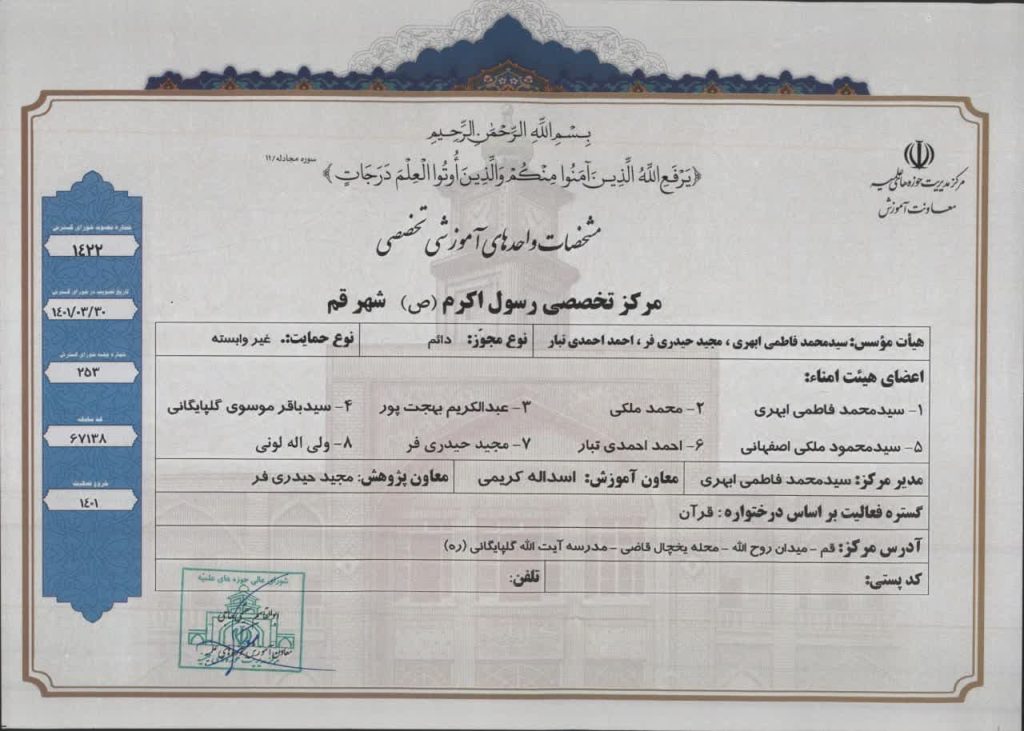 بِسْمِ اللَّهِ الرَّحْمَٰنِ الرَّحِيمِ
﴿يَرْفَعِ اللَّهُ الَّذِينَ آمَنُوا مِنْكُمْ وَالَّذِينَ أُوتُوا الْعِلْمَ دَرَجَاتٍ﴾ سوره مجادله/۱۱
مرکز مدیریت حوزه های علمیه
معاونت آموزش
مشخصات واحدهای آموزشی تخصصی
مرکز تخصصی رسول اکرم (ص) شهر قم
هیأت مؤسس: سیدمحمد فاطمی ابهری ، مجید حیدری فر ، احمد احمدی تبار
نوع مجوّز: دائم
نوع حمایت:. غیر وابسته
اعضای هیئت امناء:
۱- سیدمحمد فاطمی ابهری ۲- محمد ملکی ۳- عبدالکریم بهجت پور ۴- سیدباقر موسوی گلپایگانی
۵- سیدمحمود ملکی اصفهانی ۶- احمد احمدی تبار ۷- مجید حیدری فر ۸- ولی اله لونی
مدیر مرکز: سیدمحمد فاطمی ابهری
معاون آموزش: اسداله کریمی
معاون پژوهش: مجید حیدری فر
گستره فعالیت بر اساس درختواره: قرآن
آدرس مرکز: قم - میدان روح الله - محله یخچال قاضی - مدرسه آیت الله گلپایگانی (ره)
کد پستی:
تلفن:
شماره مصوبه شورای گسترش
۱٤۲۲
تاریخ تصویب در شورای گسترش
۱٤۰۱/۰۳/۳۰
شماره جلسه شورای گسترش
۲۵۳
کد سامانه
۶۷۱۳۸
شروع فعالیت
۱٤۰۱
شورای عالی حوزه های علمیه